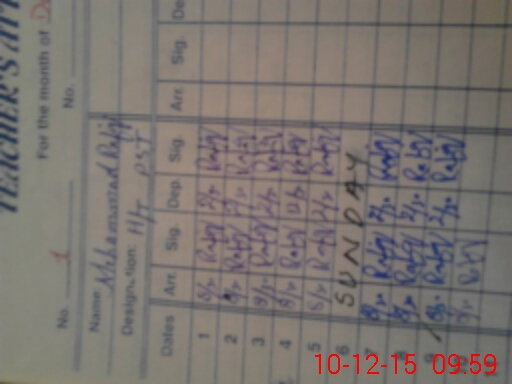 TEACHER'S ATT
For the month of De
No. 1 No.
Name Muhammad Rafiq
Designation: H/T PST
Dates Arr. Sig. Dep. Sig. Arr. Sig. De
1 8/- Rafiq 2/- Rafiq
2 8/- Rafiq 2/- Rafiq
3 8/- Rafiq 2/- Rafiq
4 8/- Rafiq 2/- Rafiq
5 8/- Rafiq 2/- Rafiq
6 SUNDAY
7 8/- Rafiq 2/- Rafiq
8 8/- Rafiq 2/- Rafiq
9 8/- Rafiq 2/- Rafiq
10 8/- Rafiq
10-12-15 09:59